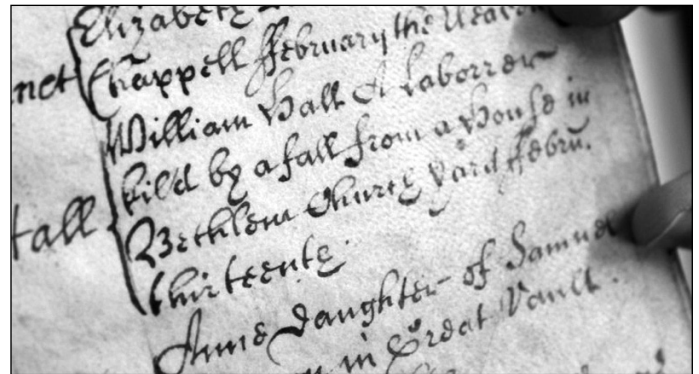 Elizabeth
net Chappell ffebruary the
William Hall A Laborrer
kild by a fall from a House in
tall Bethlem Church Yard ffebru:
thirteenth.
Anne Daughter of Samuel
in Great Vault.